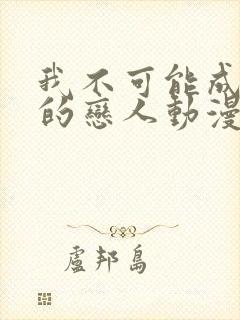 我不可能成
的戀人動漫
盧邦島